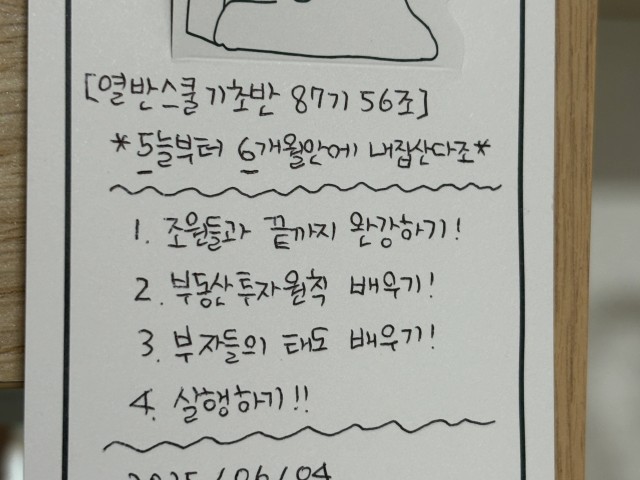 [열반스쿨기초반 87기 56조]
*5늘부터 6개월안에 내집산다조*
1. 조원들과 끝까지 완강하기!
2. 부동산투자원칙 배우기!
3. 부자들의 태도 배우기!
4. 실행하기!!
2025/06/04